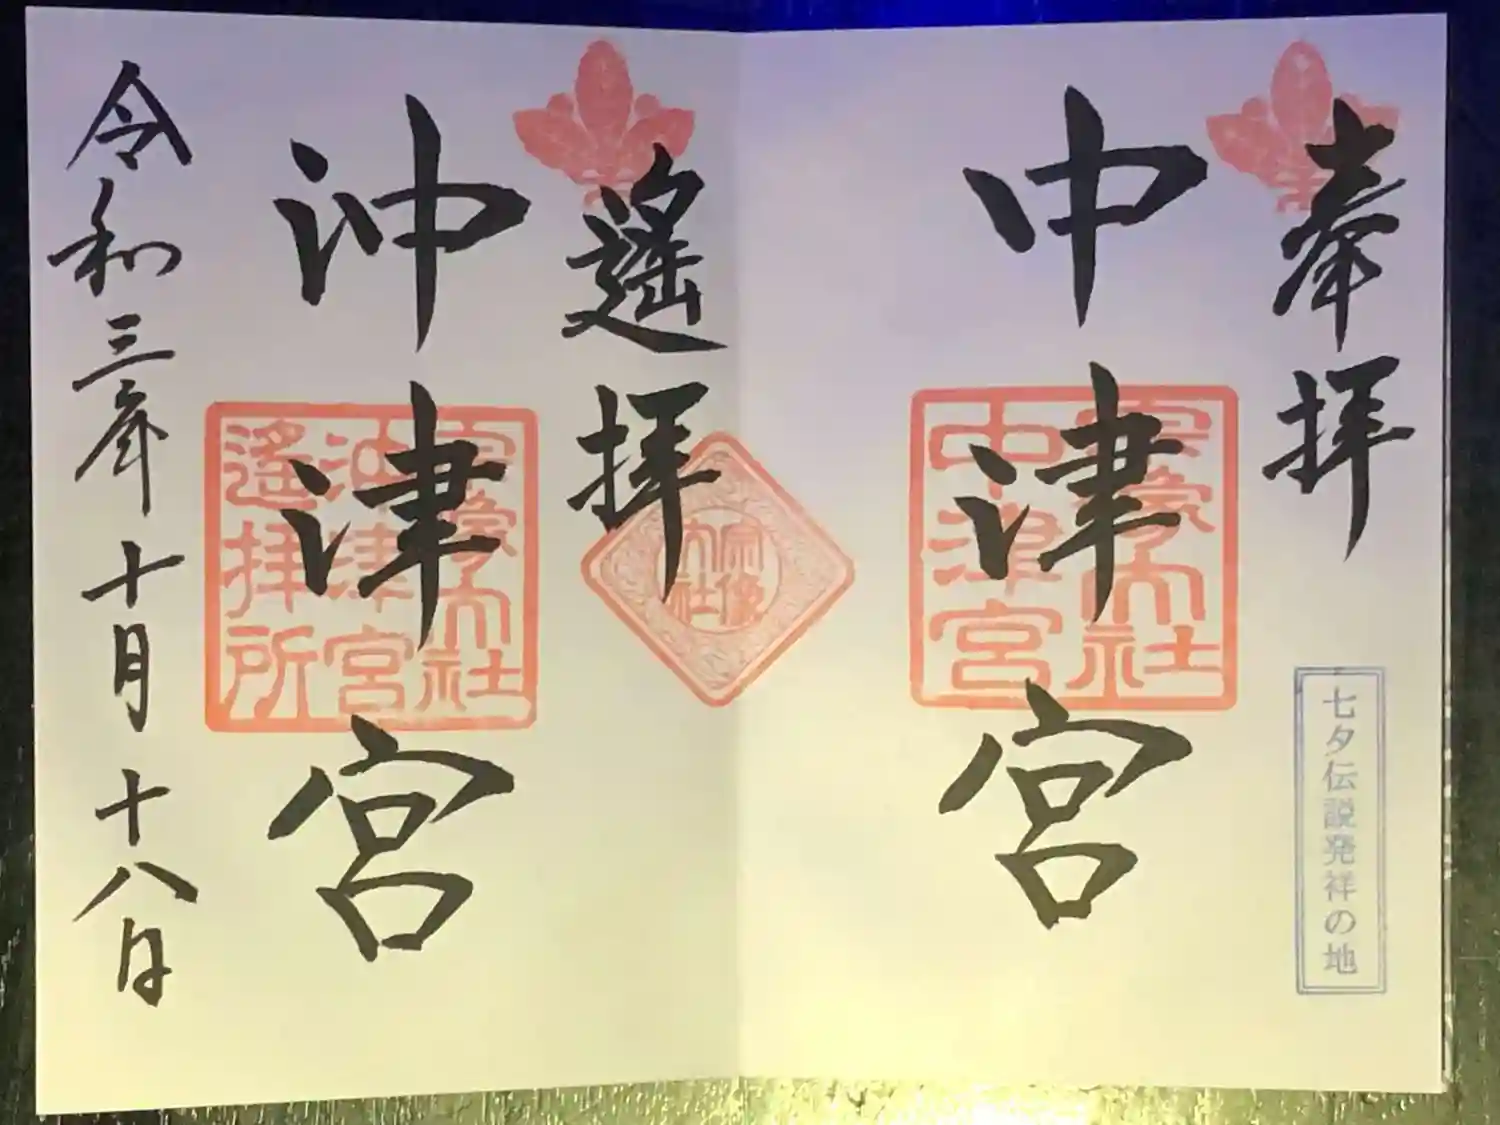 奉拝
中津宮
宗像大社
中津宮
七夕伝説発祥の地
遙拝
宗像
大社
沖津宮
宗像大社
沖津宮
遙拝所
令和三年十月十八日